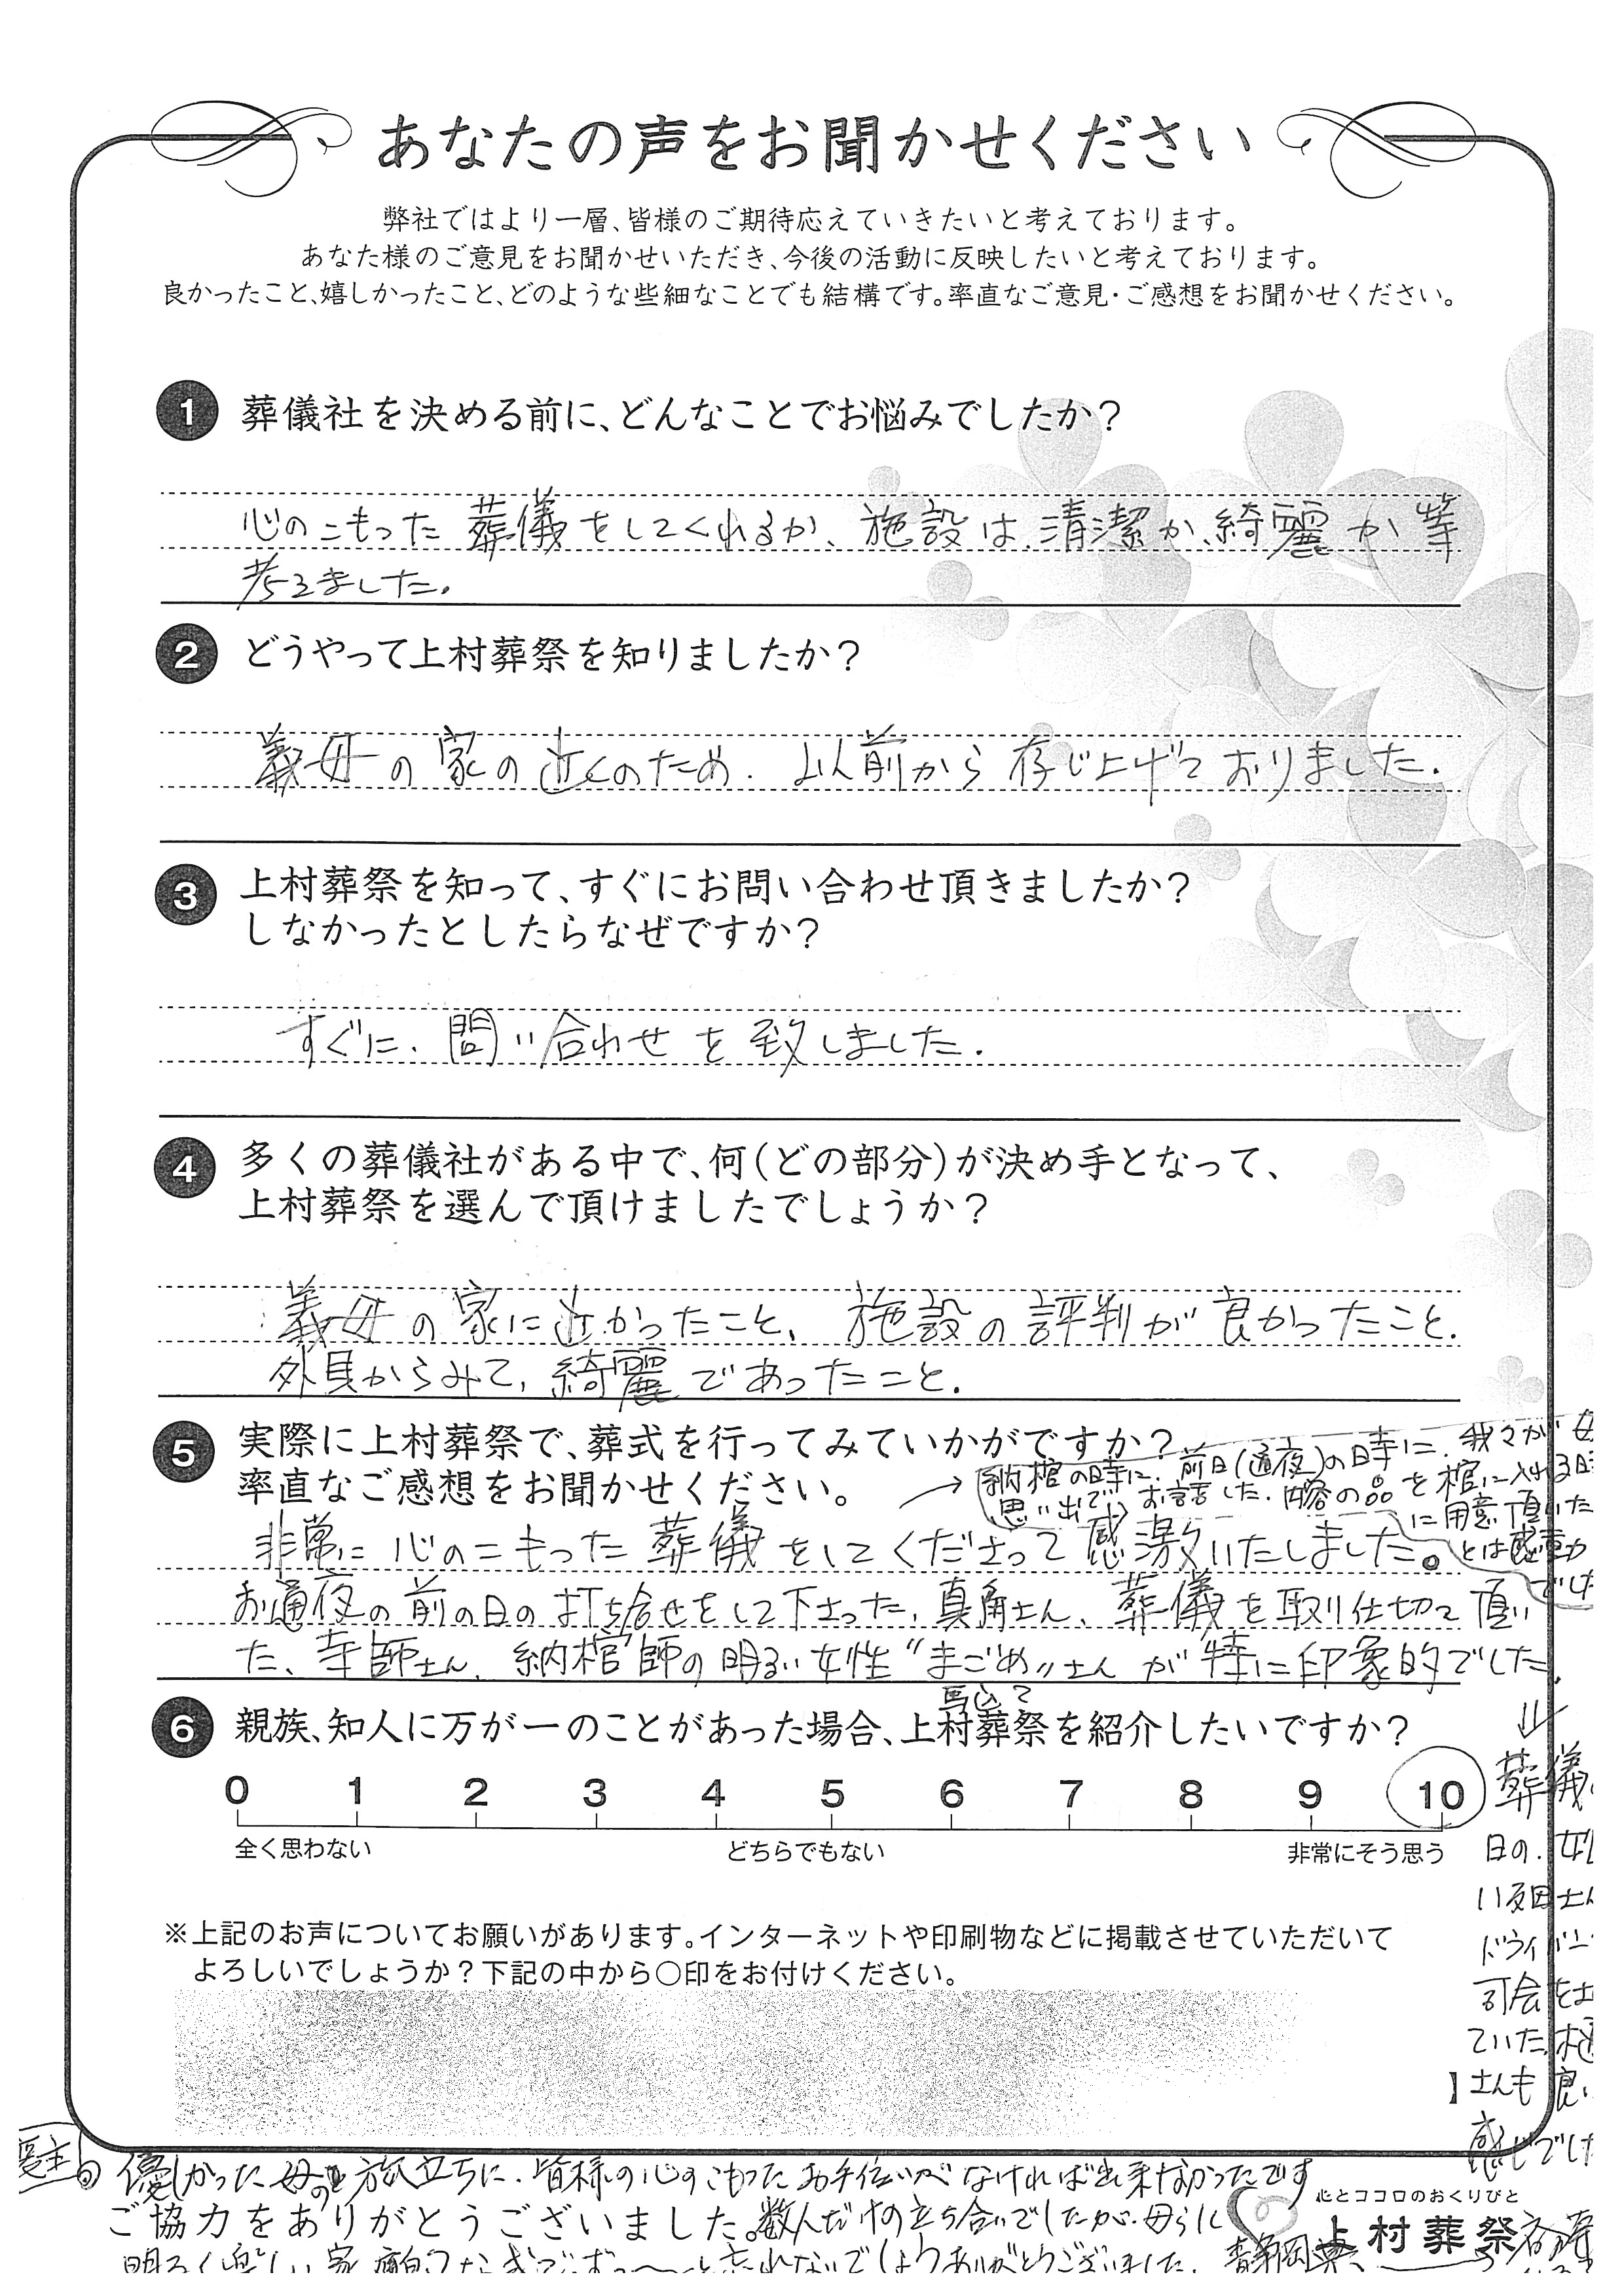 あなたの声をお聞かせください
弊社ではより一層、皆様のご期待応えていきたいと考えております。
あなた様のご意見をお聞かせいただき、今後の活動に反映したいと考えております。
良かったこと、嬉しかったこと、どのような些細なことでも結構です。率直なご意見・ご感想をお聞かせください。
1 葬儀社を決める前に、どんなことでお悩みでしたか?
心のこもった葬儀をしてくれるか、施設は清潔か、綺麗か等
考えました。
2 どうやって上村葬祭を知りましたか?
義母の家の近くのため、以前から存じ上げておりました。
3 上村葬祭を知って、すぐにお問い合わせ頂きましたか?
しなかったとしたらなぜですか?
すぐに、問い合わせを致しました。
4 多くの葬儀社がある中で、何(どの部分)が決め手となって、
上村葬祭を選んで頂けましたでしょうか?
義母の家に近かったこと、施設の評判が良かったこと。
外見からみて、綺麗であったこと。
5 実際に上村葬祭で、葬式を行ってみていかがですか?
率直なご感想をお聞かせください。
→納棺の時に、前日(通夜)の時に、我々が
思い出で、お話した、内容の品を棺に入れる
に用意頂いた
とは感動
でし
非常に心のこもった葬儀をしてくださって感激いたしました。
お通夜の前の日の打ち合せをして下さった、真角さん、葬儀を取り仕切って頂い
た、寺師さん、納棺師の明るい女性"まごめ"さんが特に印象的でした。
馬込で
6 親族、知人に万が一のことがあった場合、上村葬祭を紹介したいですか?
0 1 2 3 4 5 6 7 8 9 10
全く思わない どちらでもない 非常にそう思う
葬儀
日の、
ドライバー
司会を
ていた
さんも良い
感じでした
※上記のお声についてお願いがあります。インターネットや印刷物などに掲載させていただいて
よろしいでしょうか?下記の中から〇印をお付けください。
】
優しかった母の旅立ちに、皆様の心のこもったお手伝いがなければ出来なかったです
心とココロのおくりびと
上村葬祭
ご協力をありがとうございました。
数人だけの立ち合いでしたが、母らしく
明るく楽しい家
忘れないでしょう ありがとうございました。
静岡